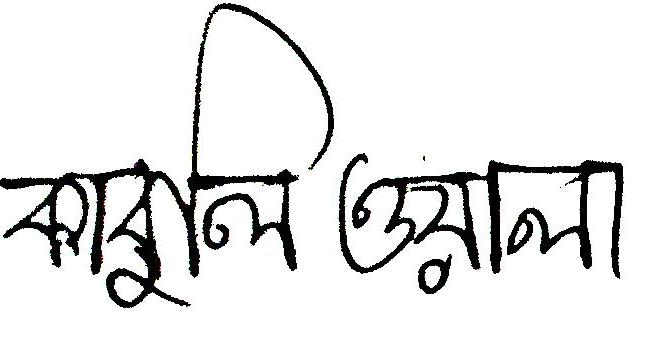 কাবুলি ওয়ালা